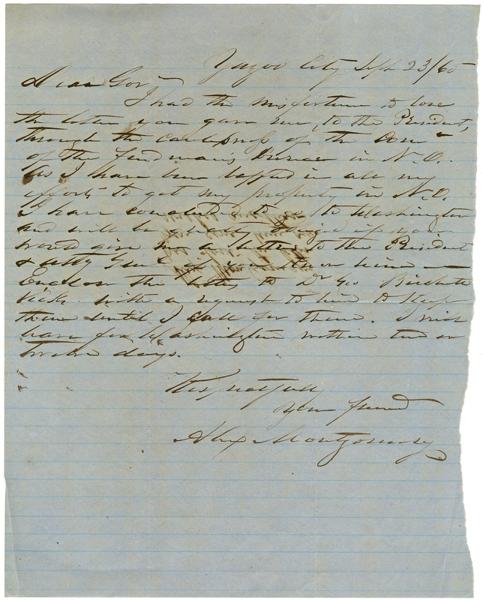 Yazoo City Sept 23/65
Dear Gov.
I had the misfortune to lose
the letter you gave me, to the President,
through the carelessness of the Com
of the freedmans Bureau in N.O.
So I have been baffled in all my
efforts to get my property in N.O.
I have concluded to go to Washington
and will be
would give me a letter to the President
& atty Genl
Enclose the letter to Dr Geo
Vicks. with a request to him to Keep
them until I call for them. I will
leave for Washington within ten or
twelve days.
Respectfull
Your friend
Alex Montgomery